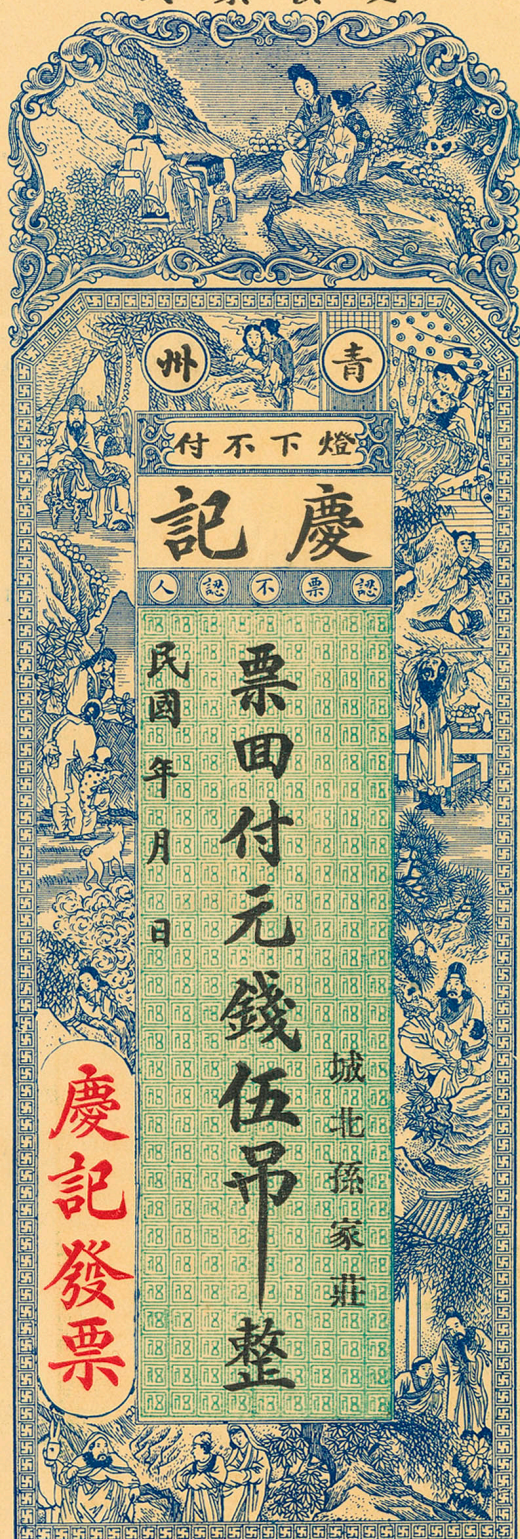 青州
燈下不付
慶記
認票不認人
城北孫家莊
票囬付元錢伍吊整
民國 年 月 日
慶記發票